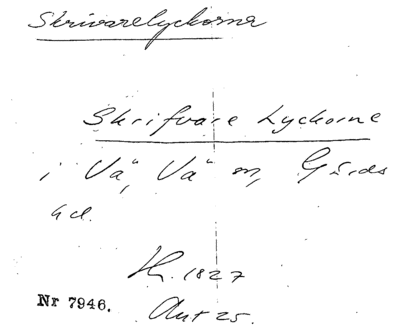 Skrivarelyckorna
Skrifvare Lyckorne
i Vä, Vä m, Gärds
hd.
H. 1827
Nr 7946.
Akt 25.